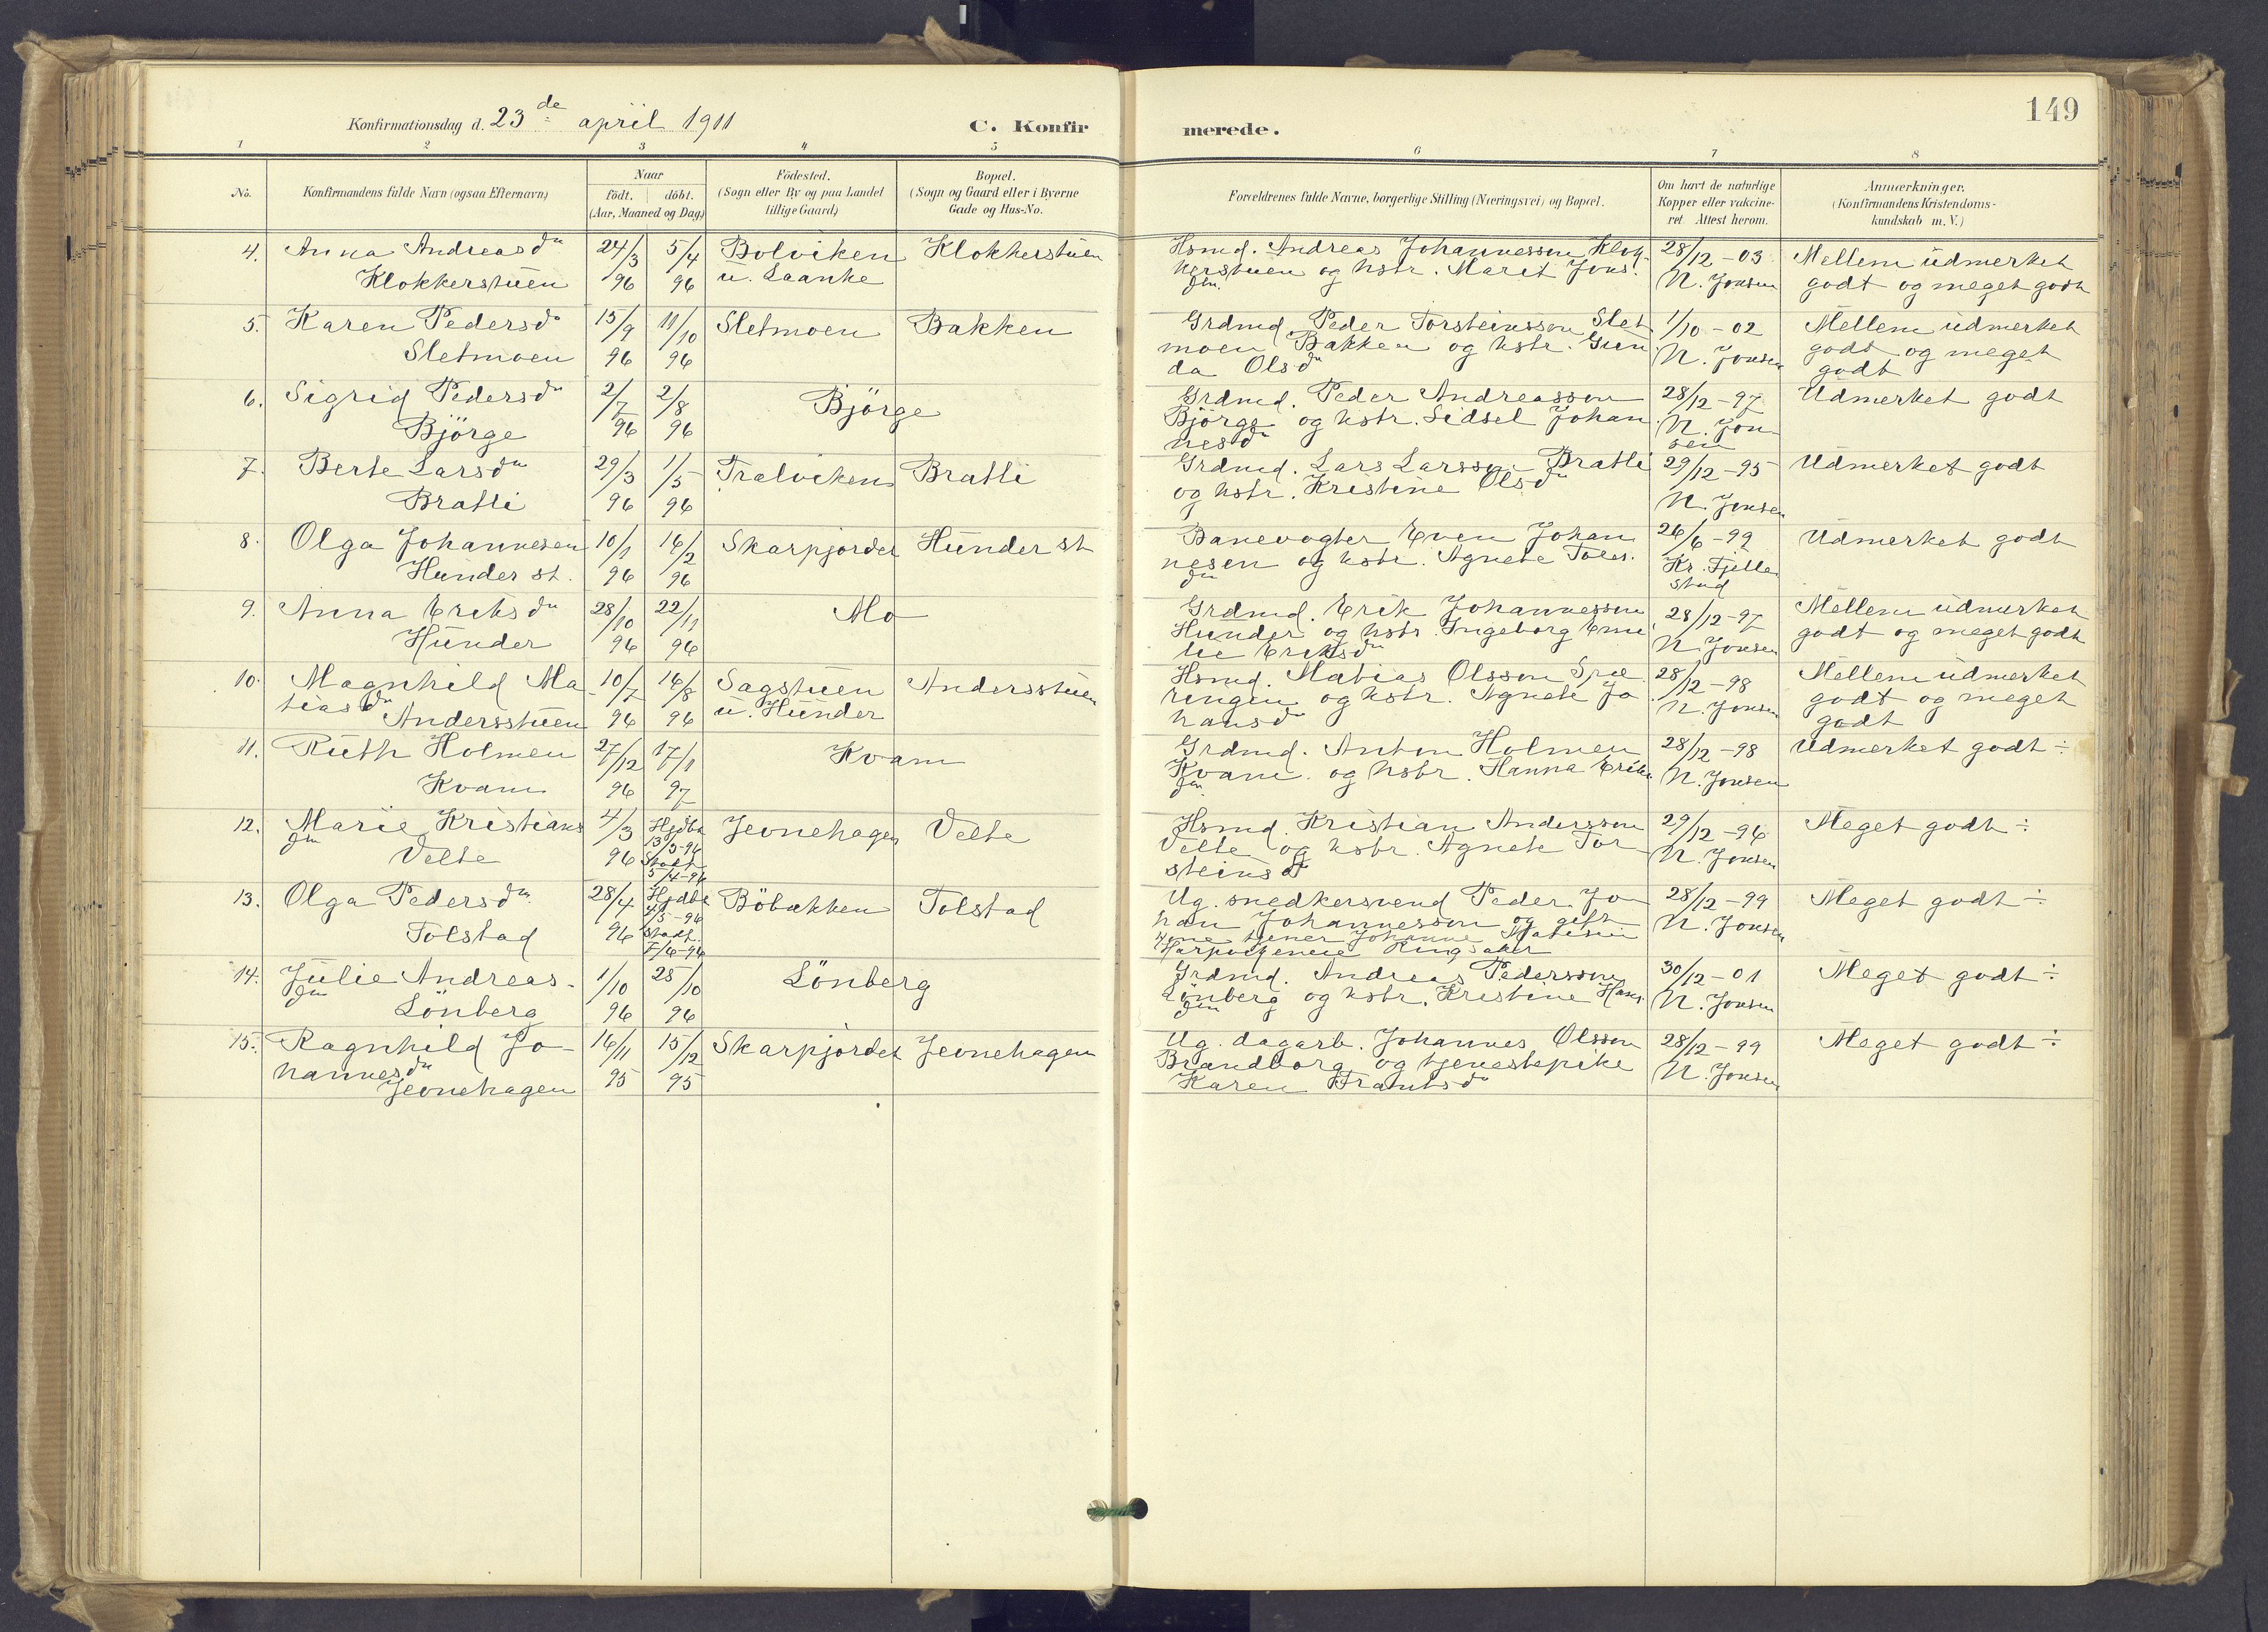 Konfirmationsdag d. 23de april 1911
C. Konfirmerede.
149
1 2 3 4 5 6 7 8
No.
Konfirmandens fulde Navn (ogsaa Efternavn)
Naar
födt. döbt.
(Aar, Maaned og Dag)
Födested.
(Sogn eller By og paa Landet
tillige Gaard)
Bopæl.
(Sogn og Gaard eller i Byerne
Gade og Hus-No.
Forældrenes fulde Navne, borgerlige Stilling (Næringsvei) og Bopæl.
Om havt de naturlige
Kopper eller vakcine-
ret Attest herom.
Anmærkninger.
(Konfirmandens Kristendoms-
kundskab m. V.)
4. Anna Andreasdn 24/3 5/4 Bolviken Klokkerstuen Hsmd. Andreas Johannesson Klok- 28/12-03 Mellem udmerket
Klokkerstuen 96 96 u. Laanke kerstuen og hstr. Marit Jons. N. Jonsen godt og meget godt
dn
5. Karen Pedersdn 15/9 11/10 Sletmoen Bakken Grdmd. Peder Torsteinsson Slet 1/10-02 Mellem udmerket
Sletmoen 96 96 moen Bakken og hstr. Gun N. Jonsen godt og meget
da Olsdn godt
6. Sigrid Pedersdn 2/7 2/8 Björge Grdmd. Peder Andreasson 28/12-97 Udmerket godt
Björge 96 96 Björge og hstr. Sidsel Johan N. Jon-
nesdn sen
7. Berte Larsdn 29/3 1/5 Tralviken Bratli Grdmd. Lars Larsson Bratli 29/12-95 Udmerket godt
Bratli 96 96 og hstr. Kristine Olsdn N. Jonsen
8. Olga Johannesen 10/1 16/2 Skarpjordet Hunder st Banevogter Even Johan 26/6-99 Udmerket godt
Hunder st. 96 96 nesen og hstr. Agnete Toles. Kr. Fjelle
dn stad
9. Anna Eriksdn 28/10 22/11 Mo Grdmd. Erik Johannesson 28/12-97 Mellem udmerket
Hunder 96 96 Hunder og hstr. Ingeborg Eme N. Jonsen godt og meget godt
lie Eriksdn
10. Magnhild Ma- 10/7 16/8 Sagstuen Andersstuen Hsmd. Matias Olsson Spæ 28/12-98 Mellem udmerket
tiasdn Andersstuen 96 96 u. Hunder ringen og hstr. Agnete Jo N. Jonsen godt og meget
hansdn godt
11. Ruth Holmen 27/12 17/1 Kvam Grdmd. Anton Holmen 28/12-98 Udmerket godt ÷
Kvam 96 97 Kvam og hstr. Hanna Eriks N. Jonsen
dn
12. Marie Kristians 4/3 Hjdbt Jevnehagen Velte Hsmd. Kristian Andersson 29/12-96 Meget godt ÷
dn Velte 96 13/3-96 Velte og hstr. Agnete Tor N. Jonsen
Stadf. 5/4-96 steinsdn
13. Olga Pedersdn 28/4 Hjdbt Böbakken Tolstad Ug. snedkersvend Peder Jo 28/12-99 Meget godt ÷
Tolstad 96 4/5-96 han Johannesson og gift N. Jonsen
stadf. 7/6-96 tjener Johanne
Ringsaker
14. Julie Andreas- 1/10 25/10 Lönberg Grdmd. Andreas Pedersson 30/12-01 Meget godt ÷
dn Lönberg 96 96 Lönberg og hstr. Kristine Hans. N. Jonsen
dn
15. Ragnhild Jo- 16/11 15/12 Skarpjordet Jevnehagen Ug. dagarb. Johannes Olsson 28/12-99 Meget godt ÷
hannesdn 95 95 Brandborg og tjenestepike N. Jonsen
Jevnehagen Karen Frantsdn